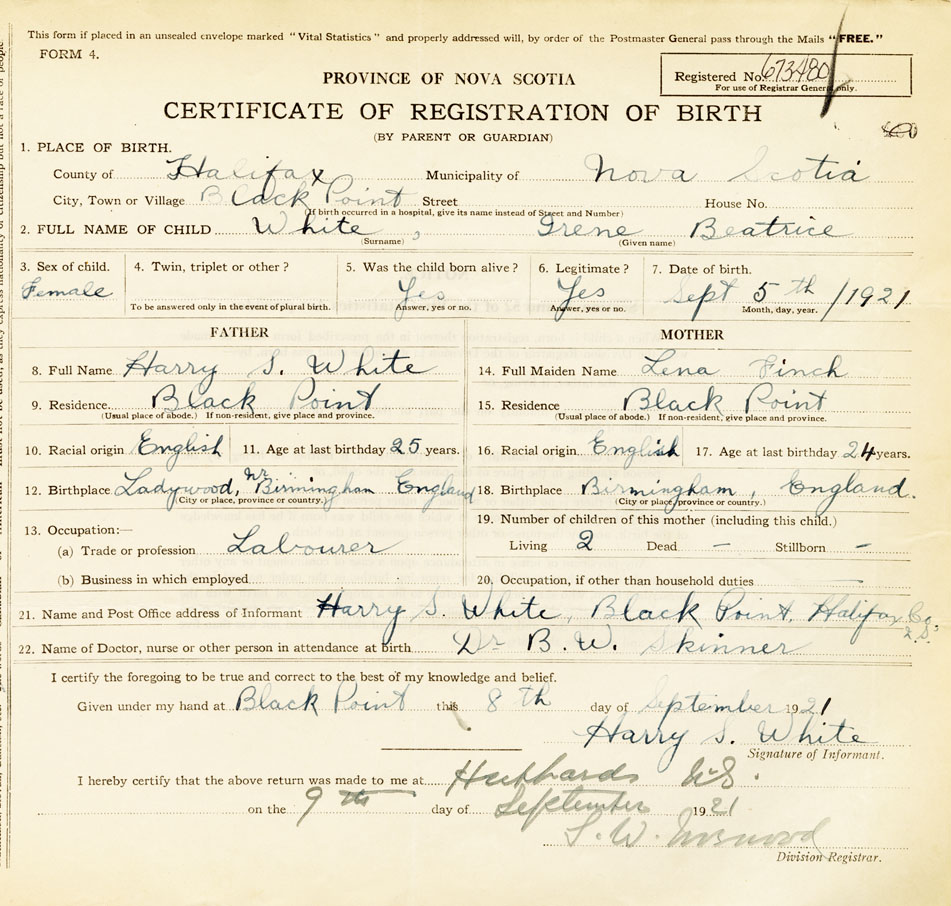 This form if placed in an unsealed envelope marked "Vital Statistics" and properly addressed will, by order of the Postmaster General pass through the Mails "FREE."
FORM 4.
PROVINCE OF NOVA SCOTIA
Registered No. 673480
For use of Registrar General only.
CERTIFICATE OF REGISTRATION OF BIRTH
(BY PARENT OR GUARDIAN)
1. PLACE OF BIRTH.
County of Halifax Municipality of Nova Scotia
City, Town or Village Black Point Street House No.
(If birth occurred in a hospital, give its name instead of Street and Number)
2. FULL NAME OF CHILD White, Irene Beatrice
(Surname) (Given name)
3. Sex of child. 4. Twin, triplet or other? 5. Was the child born alive? 6. Legitimate? 7. Date of birth.
Female Yes Yes Sept 5th/1921
To be answered only in the event of plural birth. Answer, yes or no. Answer, yes or no. Month, day, year.
FATHER MOTHER
8. Full Name Harry S. White 14. Full Maiden Name Lena Finch
9. Residence Black Point 15. Residence Black Point
(Usual place of abode.) If non-resident, give place and province. (Usual place of abode.) If non-resident, give place and province.
10. Racial origin English 11. Age at last birthday 25 years. 16. Racial origin English 17. Age at last birthday 24 years.
12. Birthplace Ladywood, nr Birmingham England 18. Birthplace Birmingham, England.
(City or place, province or country.) (City or place, province or country.)
13. Occupation:— 19. Number of children of this mother (including this child.)
(a) Trade or profession Labourer Living 2 Dead – Stillborn –
(b) Business in which employed 20. Occupation, if other than household duties —
21. Name and Post Office address of Informant Harry S. White, Black Point, Halifax Co, N.S.
22. Name of Doctor, nurse or other person in attendance at birth Dr B. W. Skinner
I certify the foregoing to be true and correct to the best of my knowledge and belief.
Given under my hand at Black Point this 8th day of September 1921
Harry S. White
Signature of Informant.
I hereby certify that the above return was made to me at Hubbards N.S.
on the 9th day of September 1921
S. W.
Division Registrar.